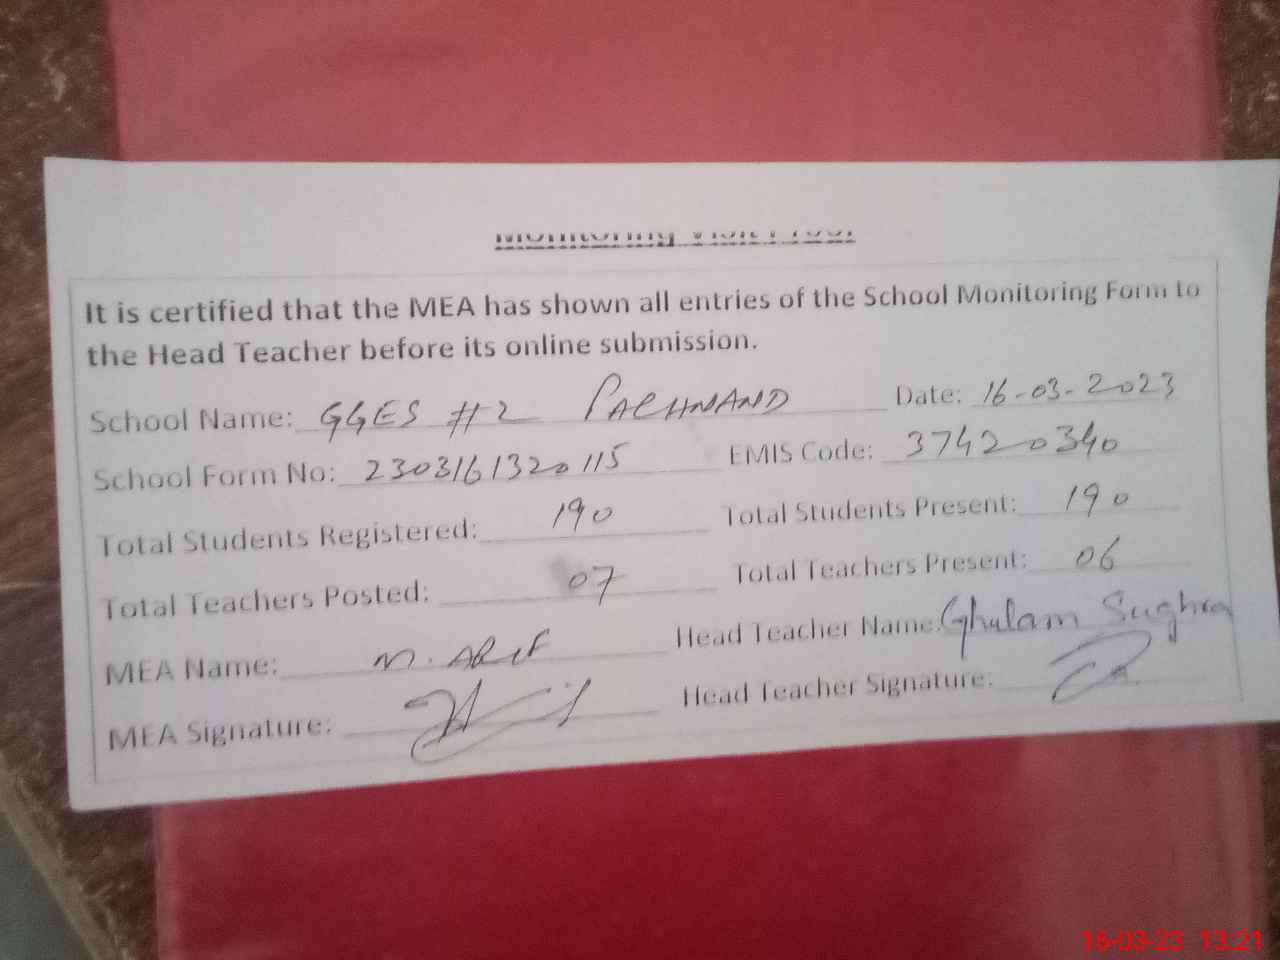 Monitoring Visit Proof
It is certified that the MEA has shown all entries of the School Monitoring Form to
the Head Teacher before its online submission.
School Name: GGES #2 PACHNAND Date: 16-03-2023
School Form No: 2303161320115 EMIS Code: 37420340
Total Students Registered: 190 Total Students Present: 190
Total Teachers Posted: 07 Total Teachers Present: 06
MEA Name: M. ARIF Head Teacher Name: Ghulam Sughra
MEA Signature: Head Teacher Signature:
16-03-23 13:21